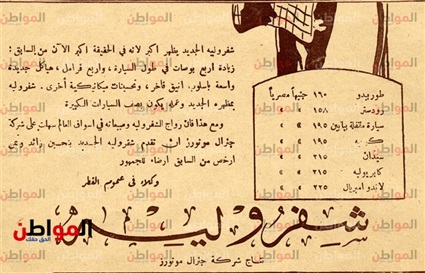 شفروليه الجديد يظهر اكبر لانه في الحقيقة اكبر الآن من السابق:
زيادة اربع بوصات في طول السيارة، واربع فرامل، هياكل جديدة
واسعة باسلوب انيق فاخر، وتحسينات ميكانيكية أخرى. شفروليه
بمظهره الجديد وعمله يكون بصف السيارات الكبيرة
ومع هذا فان رواج الشفروليه ومبيعاته في اسواق العالم سهلت على شركة
جنرال موتورز ان تقدم شفروليه الجديد بتحسين زائد وثمن
ارخص من السابق ارضاء للجمهور
وكلاء في عموم القطر
طوربيدو ١٦٠ جنيهاً مصرياً
رودستر ١٥٨ » »
سيارة مقفلة ببابين ١٩٥ » »
كوبيه ١٩٥ » »
سيدان ٢١٥ » »
كابريوليه ٢١٥ » »
لاندو امبريال ٢٢٥ » »
شفروليه
نتاج شركة جنرال موتورز
المواطن
الحق معك